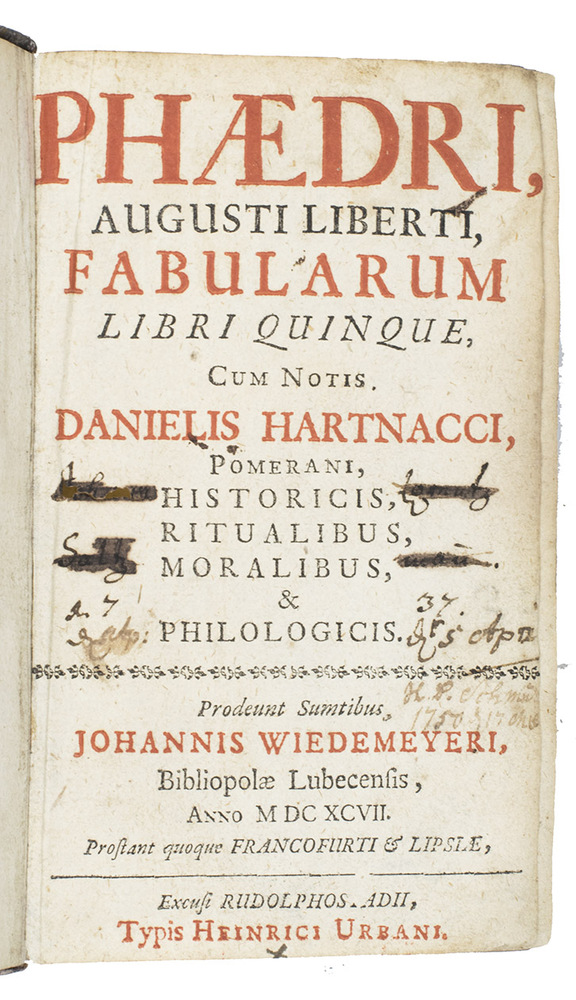 PHÆDRI,
AUGUSTI LIBERTI,
FABULARUM
LIBRI QUINQUE,
CUM NOTIS.
DANIELIS HARTNACCI,
POMERANI,
HISTORICIS,
RITUALIBUS,
MORALIBUS,
&
d. 7 37.
PHILOLOGICIS.
Prodeunt Sumtibus,
1750
JOHANNIS WIEDEMEYERI,
Bibliopolæ Lubecenſis,
ANNO M DC XCVII.
Proſtant quoque FRANCOFURTI & LIPSIÆ,
Excuſi RUDOLPHOS.ADII,
Typis HEINRICI URBANI.